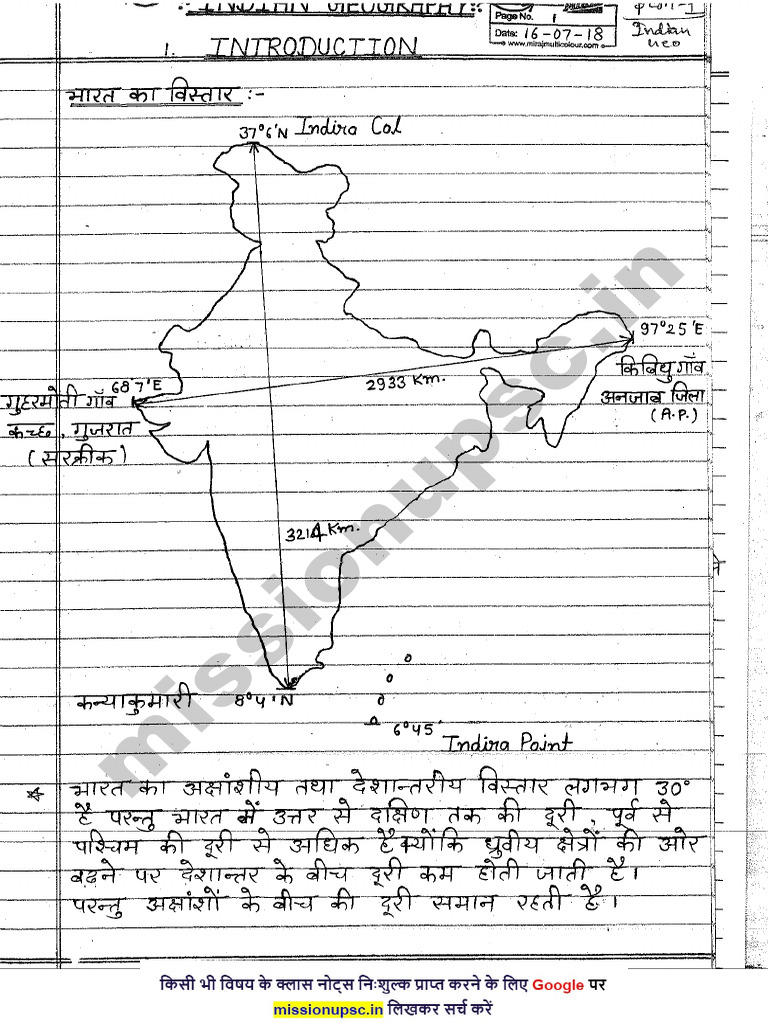 INDIAN GEOGRAPHY :-
Page No. 1
Date: 16-07-18
www.mirajmulticolour.com
Indian
1. INTRODUCTION
भारत का विस्तार :-
37°6'N Indira Col
97°25'E
किबिथु गाँव
अनजाव जिला
(A.P.)
2933 Km.
68°7'E
गुहरमोती गाँव
कच्छ, गुजरात
(सरक्रीक)
3214 Km.
कन्याकुमारी 8°4'N
6°45'
Indira Point
भारत का अक्षांशीय तथा देशान्तरीय विस्तार लगभग 30°
है परन्तु भारत में उत्तर से दक्षिण तक की दूरी, पूर्व से
पश्चिम की दूरी से अधिक है क्योंकि ध्रुवीय क्षेत्रों की ओर
बढ़ने पर देशान्तर के बीच दूरी कम होती जाती है।
परन्तु अक्षांशों के बीच की दूरी समान रहती है।
missionupsc.in
किसी भी विषय के क्लास नोट्स निःशुल्क प्राप्त करने के लिए Google पर
missionupsc.in लिखकर सर्च करें